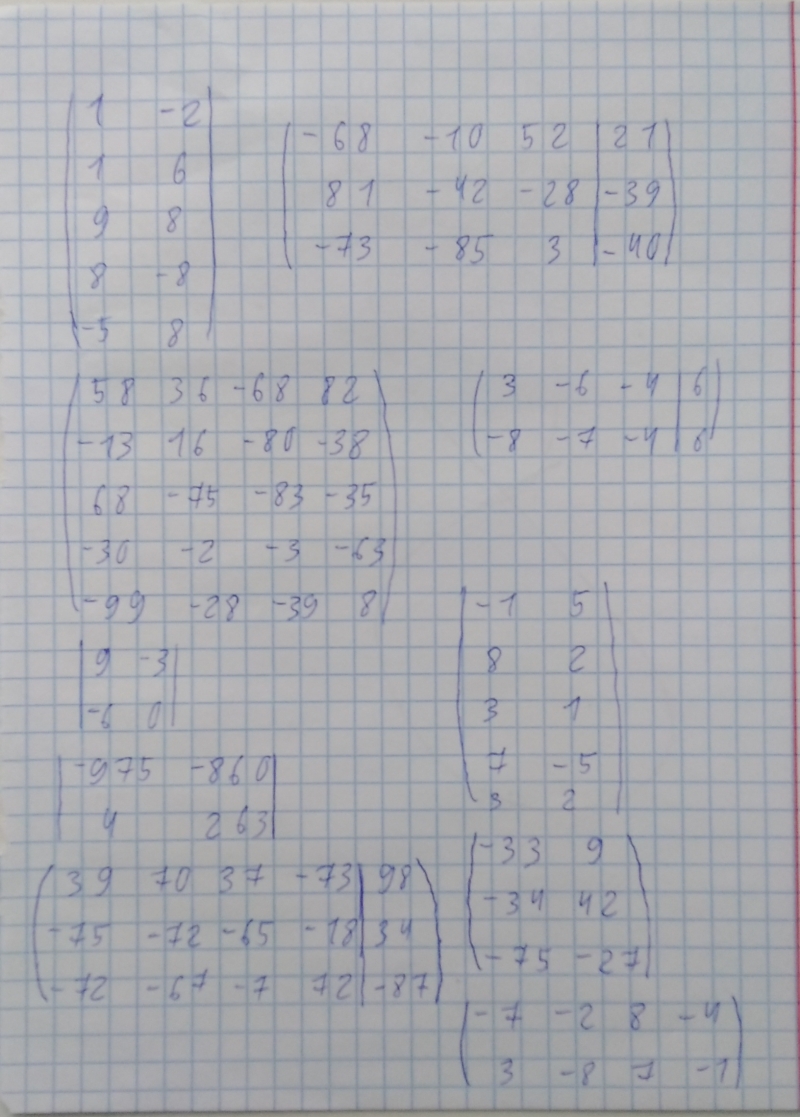 1 -2
1 6
9 8
8 -8
-5 8
-68 -10 52 | 21
81 -42 -28 | -39
-73 -85 3 | -40
58 36 -68 82
-13 16 -80 -38
68 -75 -83 -35
-30 -2 -3 -63
-99 -28 -39 8
3 -6 -4 | 6
-8 -7 -4 | 6
9 -3
-6 0
-1 5
8 2
3 1
7 -5
3 2
-975 -860
4 263
39 70 37 -73 | 98
-75 -72 -65 -18 | 34
-72 -67 -7 72 | -87
-33 9
-34 42
-75 -27
-7 -2 8 -4
3 -8 7 -1